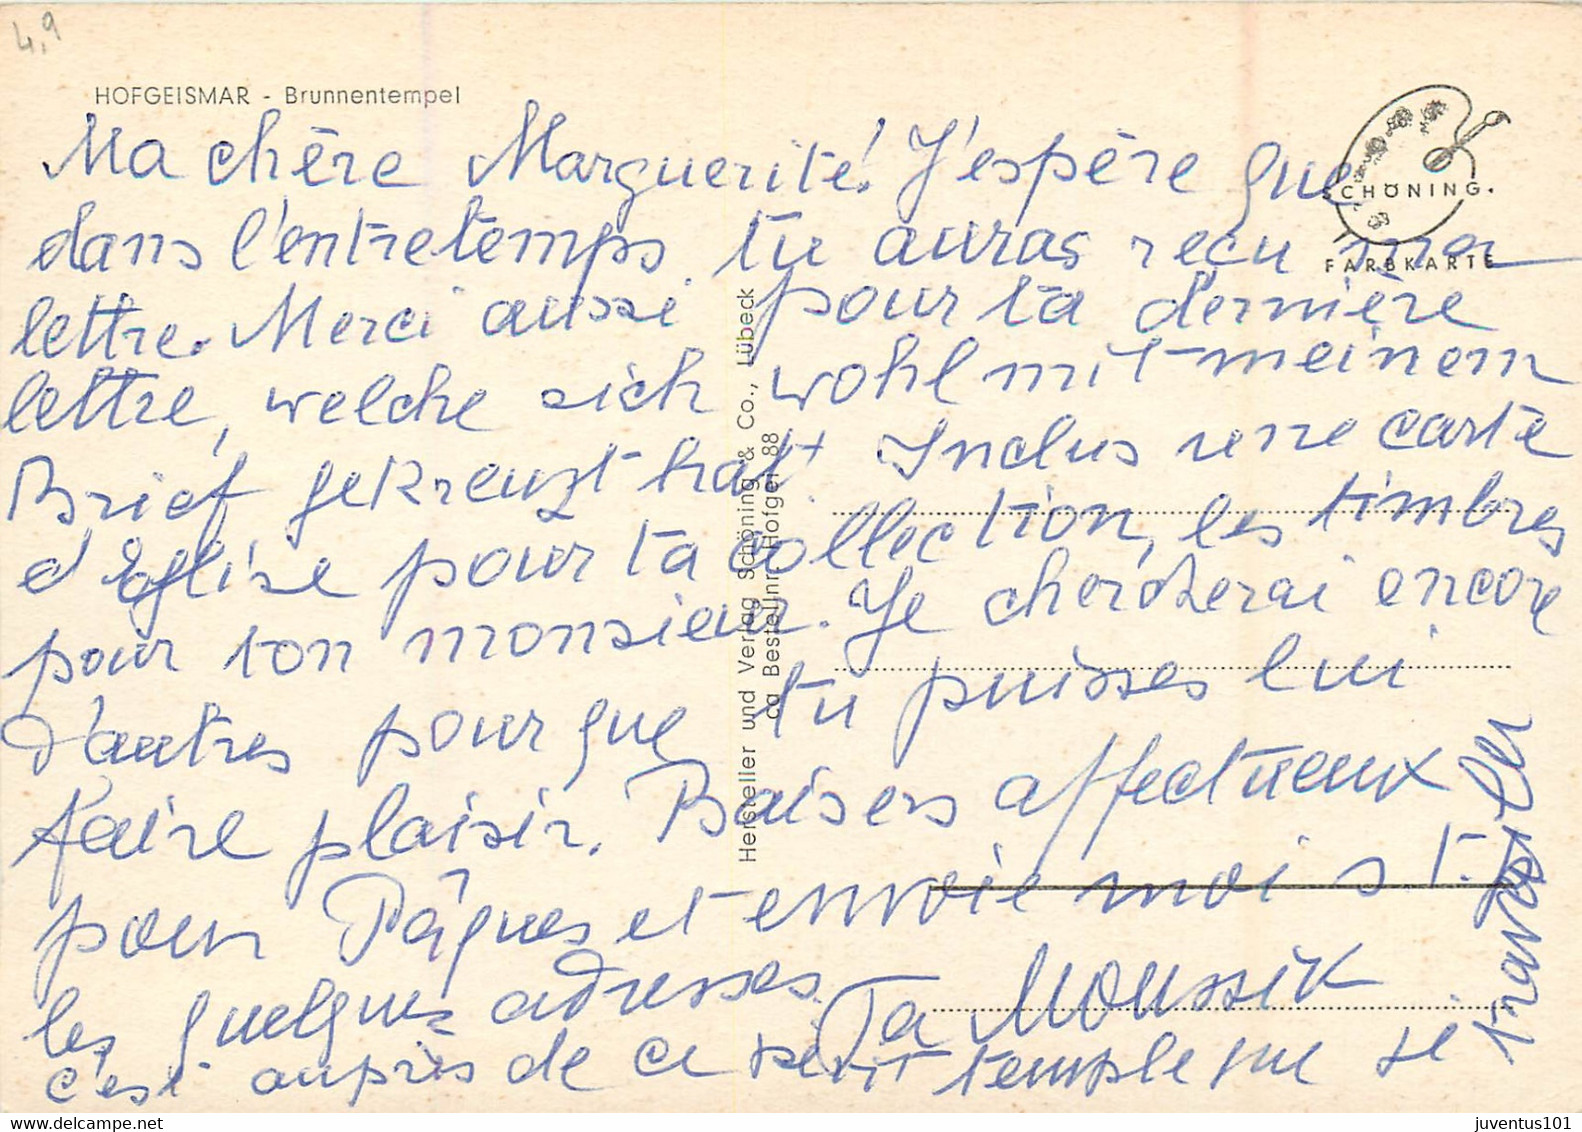 4,9
HOFGEISMAR - Brunnentempel
Ma chère Marguerite! J'espère que
dans l'entretemps tu auras reçu ma
lettre. Merci aussi pour ta dernière
lettre, welche sich wohl mit meinem
Brief gekreuzt hat. Inclus une carte
d'Eglise pour ta collection, les timbres
pour ton monsieur. Je chercherai encore
d'autres pour que tu puisses lui
faire plaisir. Baisers affectueux
pour Pâques et envoie moi s.t.
les quelques adresses. Ta Moussik
c'est auprès de ce petit temple que se
SCHÖNING.
FARBKARTE
Hersteller und Verlag Schöning & Co., Lübeck
ca Bestellnr. Hofgei 88
juventus101